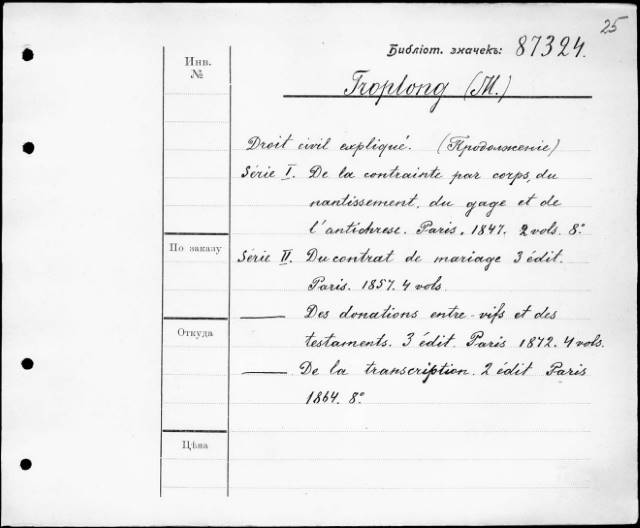 25
Библіот. значекъ: 87324.
Инв.
№
Troplong (M.)
Droit civil expliqué. (Продолженіе)
Série I. De la contrainte par corps, du
nantissement, du gage et de
l'antichrese. Paris. 1847. 2 vols. 8º
По заказу
Série II. Du contrat de mariage 3 édit.
Paris. 1857. 4 vols.
—— Des donations entre-vifs et des
Откуда
testaments. 3 édit. Paris 1872. 4 vols.
—— De la transcription. 2 édit Paris
1864. 8º
Цѣна